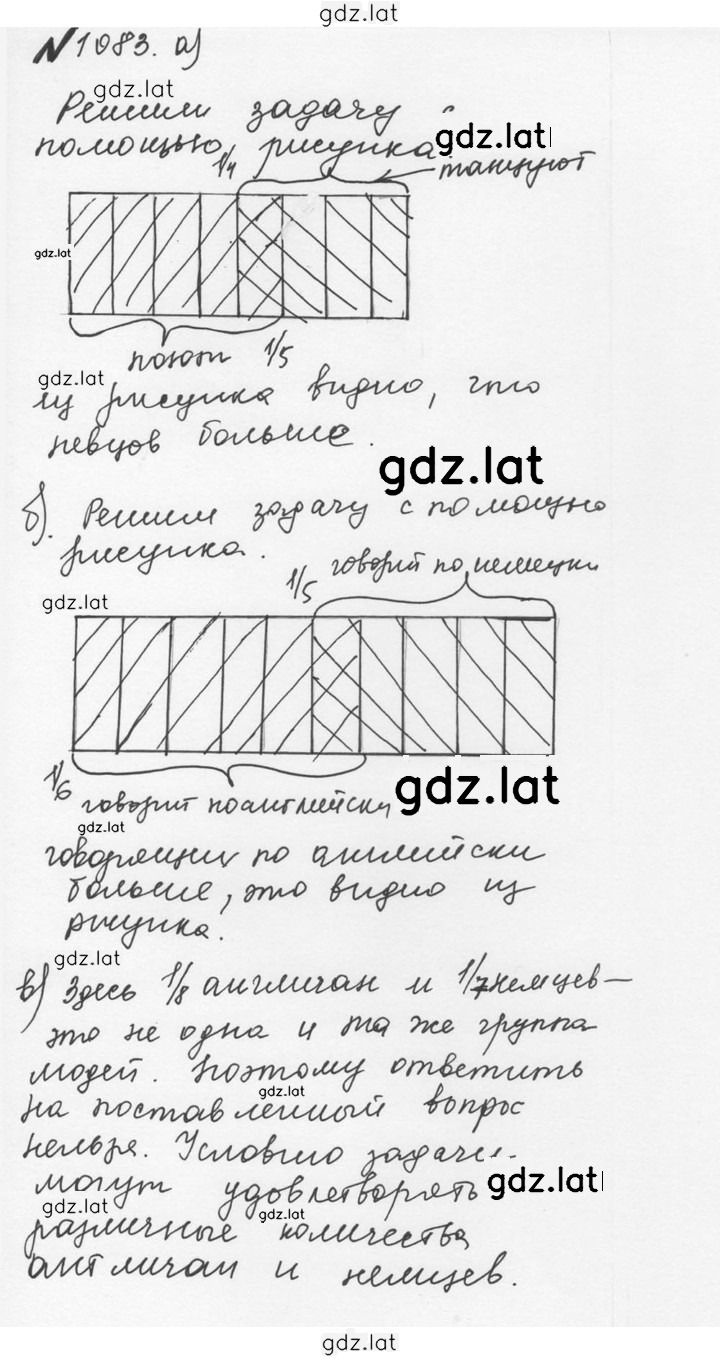 gdz.lat
№1083. а)
gdz.lat
Решим задачу с
помощью рисунка
gdz.lat
1/4
танцуют
gdz.lat
поют 1/5
gdz.lat
из рисунка видно, что
певцов больше.
gdz.lat
б). Решим задачу с помощью
рисунка.
1/5 говорит по немецки
gdz.lat
1/6 говорит по английски
gdz.lat
gdz.lat
говорящих по английски
больше, это видно из
рисунка.
gdz.lat
в) Здесь 1/8 англичан и 1/7 немцев –
это не одна и та же группа
людей. Поэтому ответить
gdz.lat
на поставленный вопрос
нельзя. Условию задачи
могут удовлетворять
gdz.lat
gdz.lat
gdz.lat
различные количества
англичан и немцев.
gdz.lat